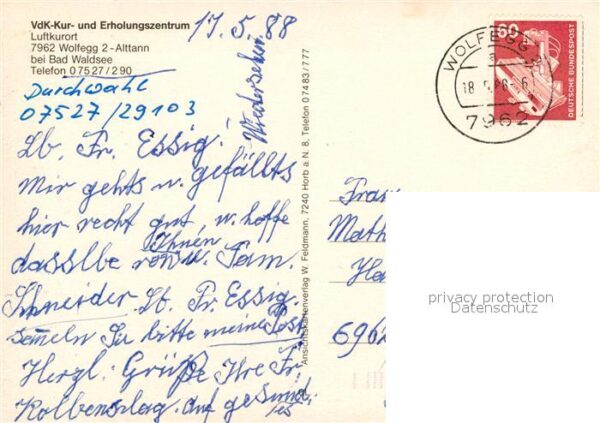 VdK-Kur- und Erholungszentrum
Luftkurort
7962 Wolfegg 2-Alttann
bei Bad Waldsee
Telefon 07527/290
17.5.88
Durchwahl
07527/29103
Lb. Fr. Essig!
Mir gehts u. gefällts
hier recht gut, u. hoffe
Ihnen
dasslbe von u. Fam.
Schneider. Lb. Fr. Essig.
Sie bitte meine Post
Herzl. Grüße Ihre Fr.
Kolbenschlag. auf gesund
es
Wiedersehen
Ansichtskartenverlag W. Feldmann, 7240 Horb a. N. 8, Telefon 07483/777
WOLFEGG
18.5.88
7962
60
DEUTSCHE BUNDESPOST
Frau
Math
6962
privacy protection
Datenschutz